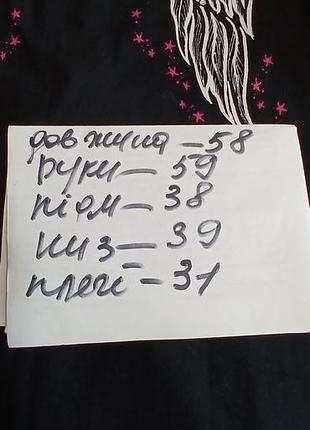 довжина - 58
руки - 59
піам - 38
низ - 39
плечі - 31